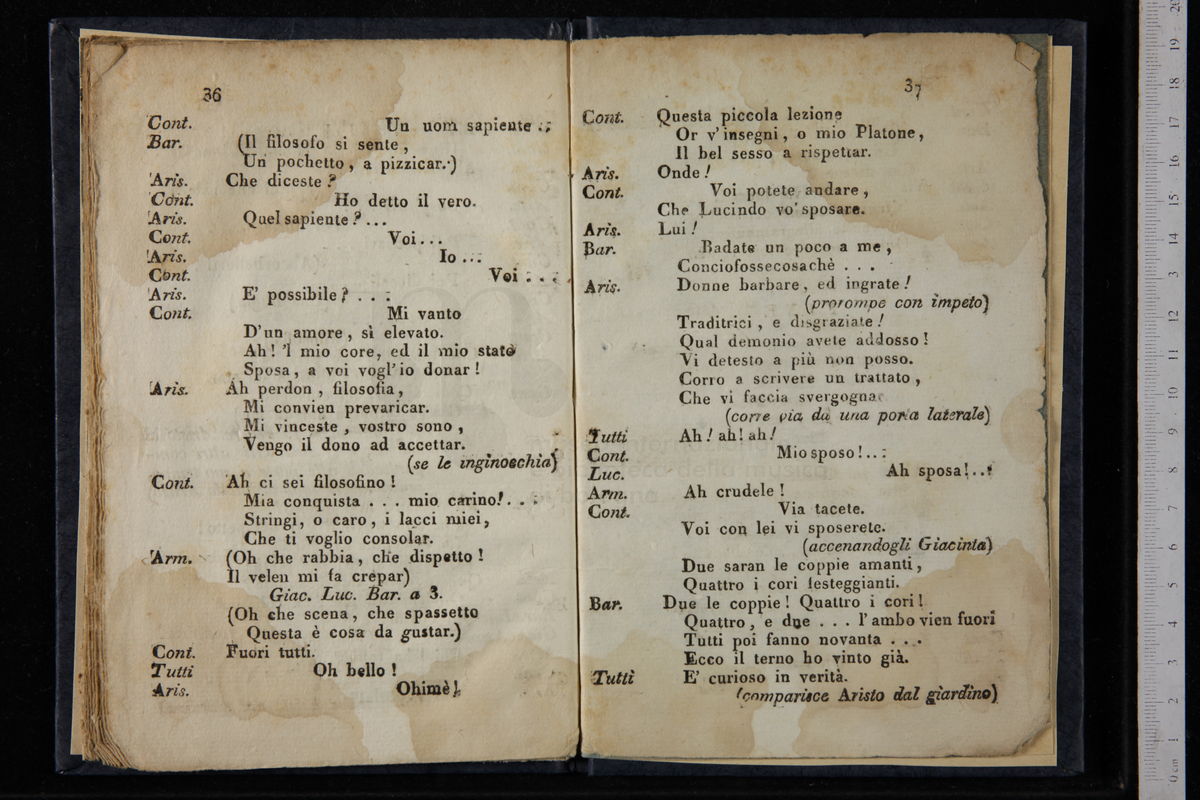 36
Cont. Un uom sapiente . .
Bar. (Il filosofo si sente ,
Un pochetto , a pizzicar.)
Aris. Che diceste ?
Cont. Ho detto il vero.
Aris. Quel sapiente ? . . .
Cont. Voi . . .
Aris. Io . . .
Cont. Voi . . .
Aris. E' possibile ? . . .
Cont. Mi vanto
D'un amore , sì elevato.
Ah ! 'l mio core, ed il mio stato
Sposa , a voi vogl'io donar !
Aris. Ah perdon , filosofia ,
Mi convien prevaricar.
Mi vinceste , vostro sono ,
Vengo il dono ad accettar.
(se le inginocchia)
Cont. Ah ci sei filosofino !
Mia conquista . . . mio carino! . . .
Stringi, o caro , i lacci miei,
Che ti voglio consolar.
Arm. (Oh che rabbia , che dispetto !
Il velen mi fa crepar)
Giac. Luc. Bar. a 3.
(Oh che scena , che spassetto
Questa è cosa da gustar.)
Cont. Fuori tutti.
Tutti Oh bello !
Aris. Ohimè !
37
Cont. Questa piccola lezione
Or v'insegni , o mio Platone,
Il bel sesso a rispettar.
Aris. Onde !
Cont. Voi potete andare ,
Che Lucindo vo' sposare.
Aris. Lui !
Bar. Badate un poco a me ,
Conciofossecosachè . . .
Aris. Donne barbare, ed ingrate !
(prorompe con impeto)
Traditrici , e disgraziate !
Qual demonio avete addosso !
Vi detesto a più non posso.
Corro a scrivere un trattato ,
Che vi faccia svergognar
(corre via da una porta laterale)
Tutti Ah ! ah! ah !
Cont. Mio sposo ! . . .
Luc. Ah sposa ! . . .
Arm. Ah crudele !
Cont. Via tacete.
Voi con lei vi sposerete.
(accenandogli Giacinta)
Due saran le coppie amanti ,
Quattro i cori festeggianti.
Bar. Due le coppie ! Quattro i cori !
Quattro , e due . . . l'ambo vien fuori
Tutti poi fanno novanta . . .
Ecco il terno ho vinto già.
Tutti E' curioso in verità.
(comparisce Aristo dal giardino)